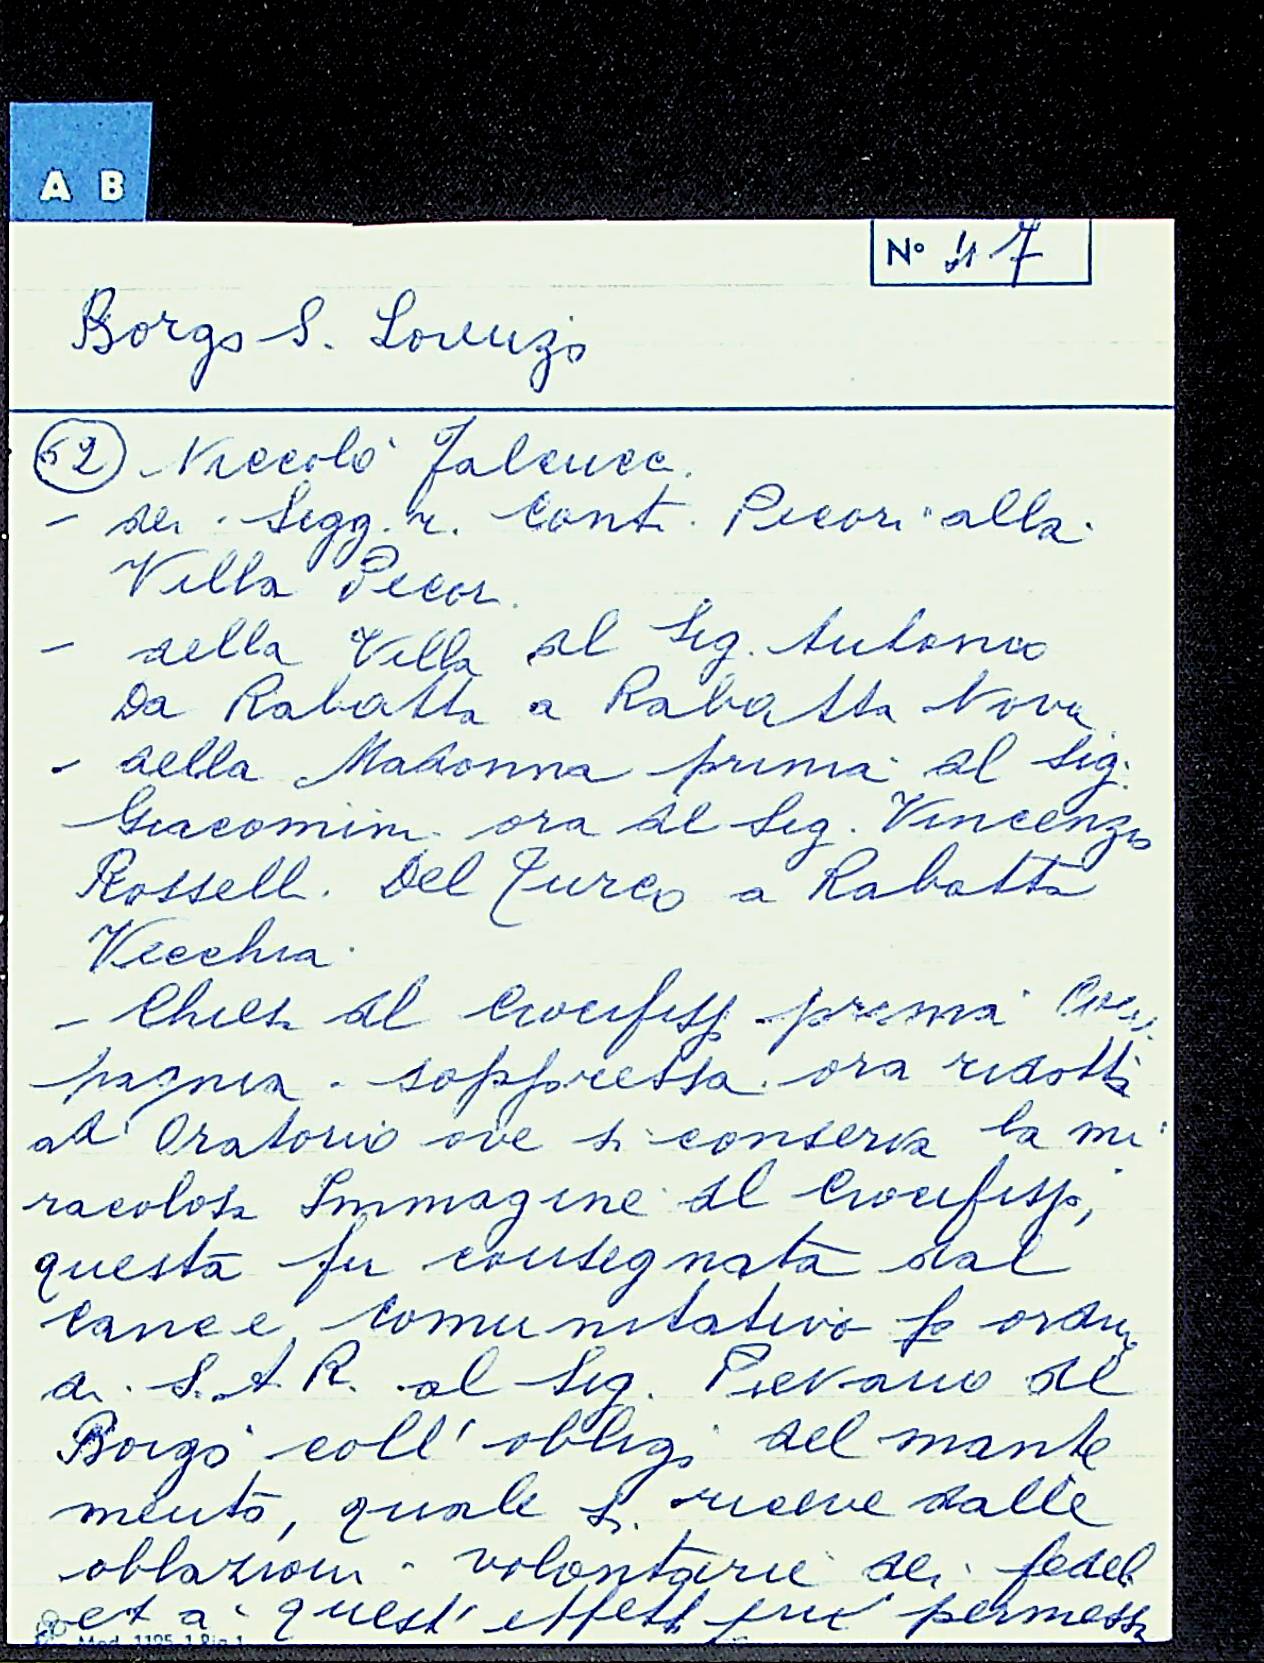 A B
N° 47
Borgo S. Lorenzo
52 Niccolò Falcucci.
- dei Sigg.ri Conti Pecori alla
Villa Pecori
- della Villa del Sig. Antonio
Da Rabatta a Rabatta Nova
- della Madonna prima del Sig.
Giacomini ora del Sig. Vincenzo
Rosselli Del Turco a Rabatta
Vecchia.
- Chiesa del Crocifisso prima Com
pagnia soppressa ora ridotta
ad Oratorio ove si conserva la mi
racolosa Immagine del Crocifisso,
questa fu consegnata dal
Canc.e comunitativo p ordine
di S.A.R. al Sig. Pievano del
Borgo coll' obligo del mante
mento, quale si riceve dalle
oblazioni volontarie dei fedeli
et a quest' effetto fu permessa
Mod. 1125